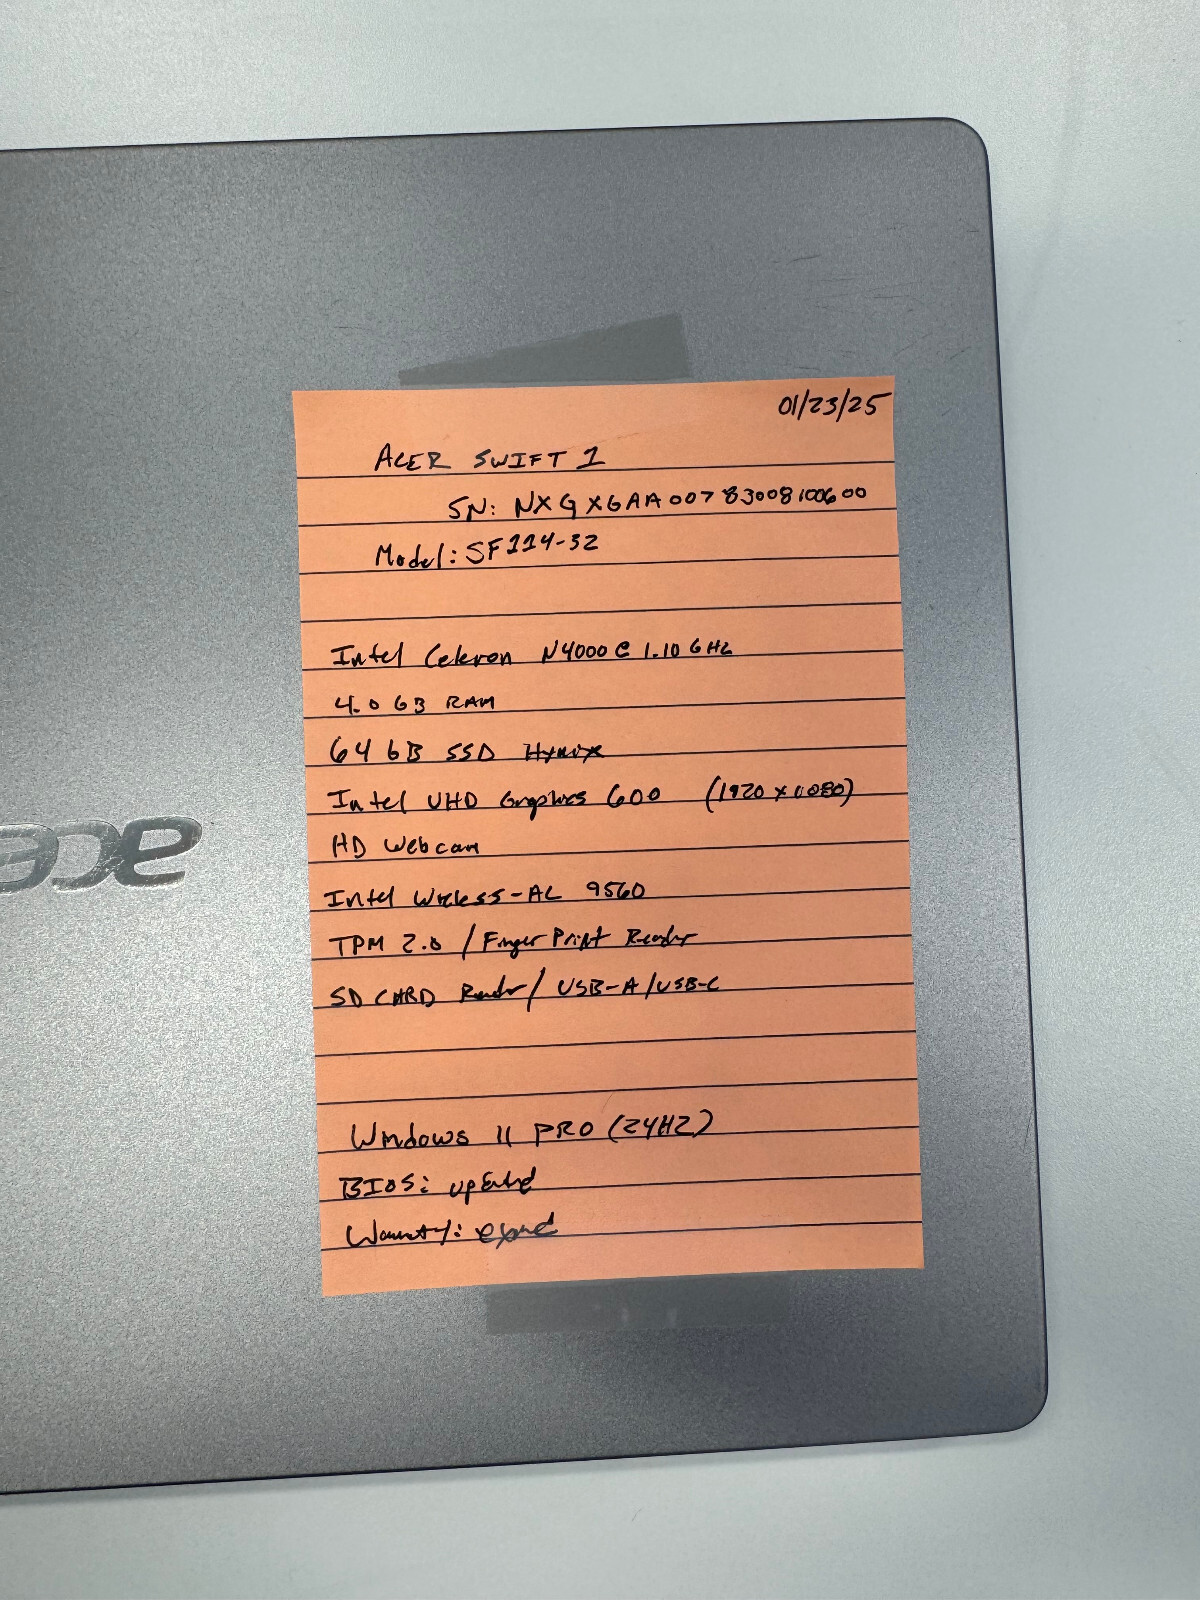 01/23/25
ACER SWIFT 1
SN: NXGXGAA00783008100600
Model: SF114-32
Intel Celeron N4000C 1.10GHz
4.0 GB RAM
64 GB SSD Hynix
Intel UHD Graphics 600 (1920 x 1080)
HD Webcam
acer
Intel Wireless-AC 9560
TPM 2.0 / Finger Print Reader
SD CARD Reader / USB-A / USB-C
Windows 11 PRO (24H2)
BIOS: updated
Warranty: expired